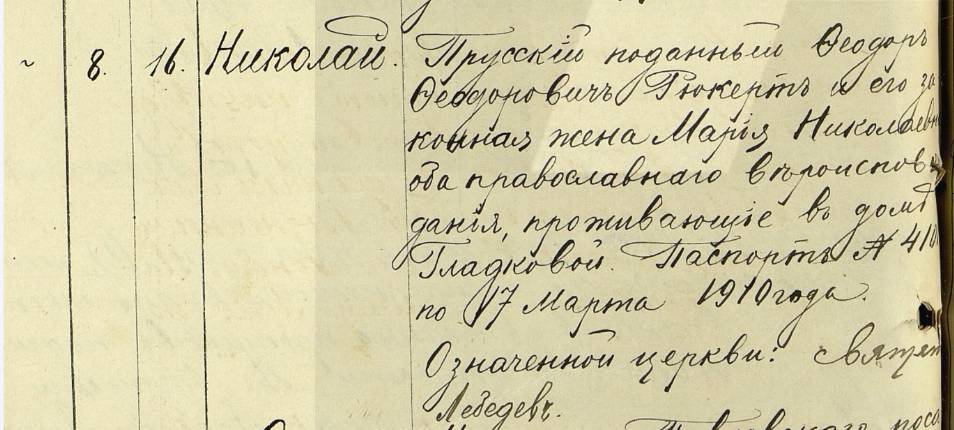 8. 16. Николай. Прусскiй подданный Ѳеодоръ
Ѳеодоровичъ Рюкертъ и его за
конная жена Марiя Николаевн
оба православнаго вѣроисповѣ
данiя, проживающiе въ домѣ
Гладковой. Паспортъ № 410
по 17 Марта 1910 года.
Означенной церкви:
Лебедевъ.